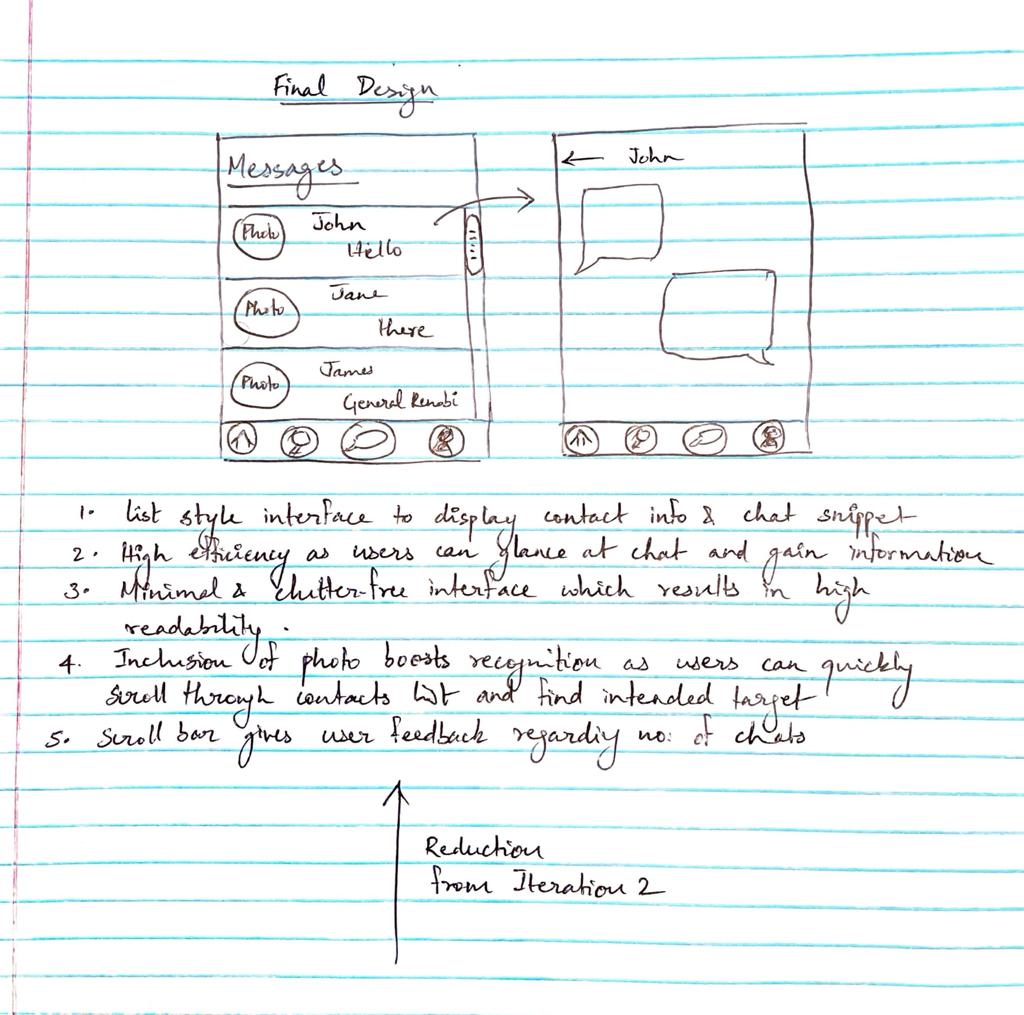 Final Design
Messages
Photo
John
Hello
Photo
Jane
there
Photo
James
General Kenobi
← John
1. List style interface to display contact info & chat snippet
2. High efficiency as users can glance at chat and gain information
3. Minimal & clutter-free interface which results in high
readability.
4. Inclusion of photo boosts recognition as users can quickly
scroll through contacts list and find intended target
5. Scroll bar gives user feedback regarding no: of chats
Reduction
from Iteration 2